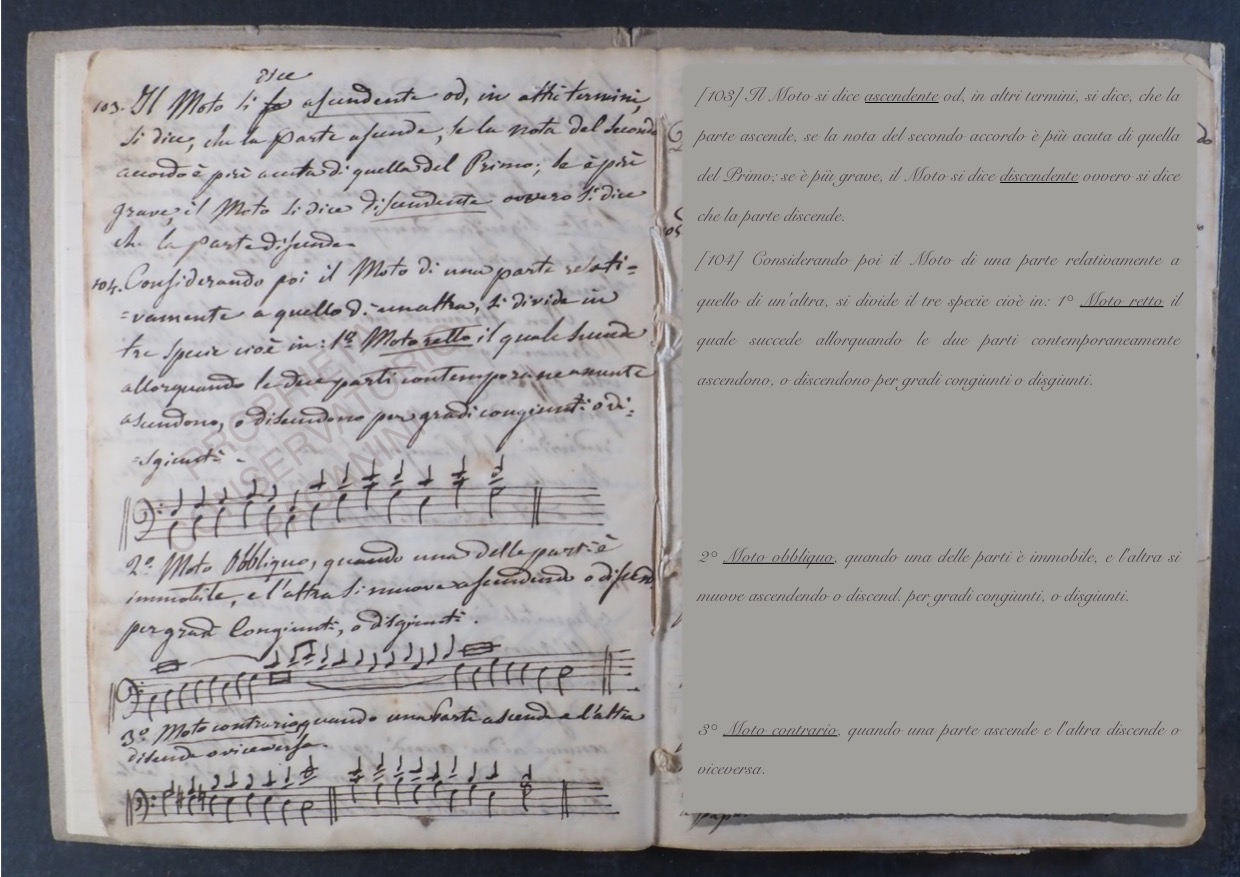 dice
103. Il Moto si fa ascendente od, in altri termini,
si dice, che la parte ascende, se la nota del secondo
accordo è più acuta di quella del Primo; se è più
grave, il Moto si dice discendente ovvero si dice
che la parte discende.
104. Considerando poi il Moto di una parte relati=
=vamente a quello di un'altra, si divide in
tre specie cioè in: 1º Moto retto il quale succede
allorquando le due parti contemporaneamente
ascendono, o discendono per gradi congiunti o di=
=sgiunti.
2º. Moto Obbliquo, quando una delle parti è
immobile, e l'altra si muove ascendendo o discend.
per gradi Congiunti, o disgiunti.
3º Moto contrario, quando una Parte ascende e l'altra
discende o viceversa.
PROPRIETÀ
CONSERVATORIO
PAGANINI
[103] Il Moto si dice ascendente od, in altri termini, si dice, che la
parte ascende, se la nota del secondo accordo è più acuta di quella
del Primo; se è più grave, il Moto si dice discendente ovvero si dice
che la parte discende.
[104] Considerando poi il Moto di una parte relativamente a
quello di un'altra, si divide il tre specie cioè in: 1° Moto retto il
quale succede allorquando le due parti contemporaneamente
ascendono, o discendono per gradi congiunti o disgiunti.
2° Moto obbliquo, quando una delle parti è immobile, e l'altra si
muove ascendendo o discend. per gradi congiunti, o disgiunti.
3° Moto contrario, quando una parte ascende e l'altra discende o
viceversa.